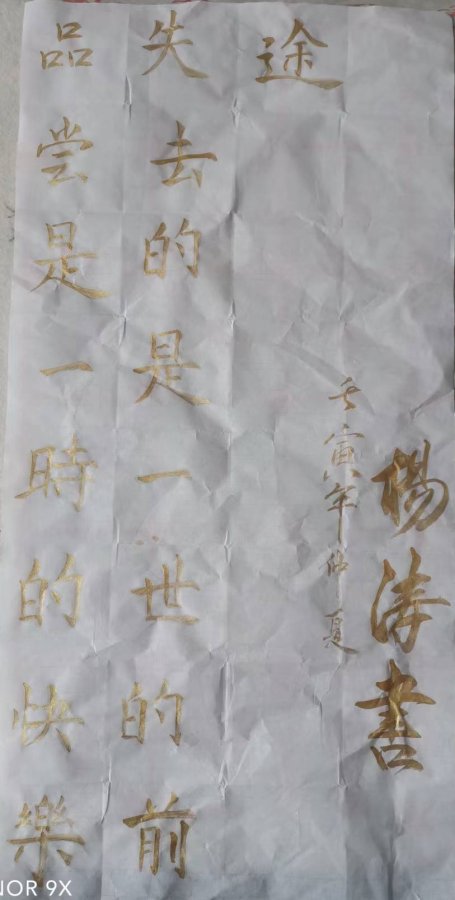 品尝是一時的快樂
失去的是一世的前
途
壬寅年仲夏
楊涛書
NOR 9X